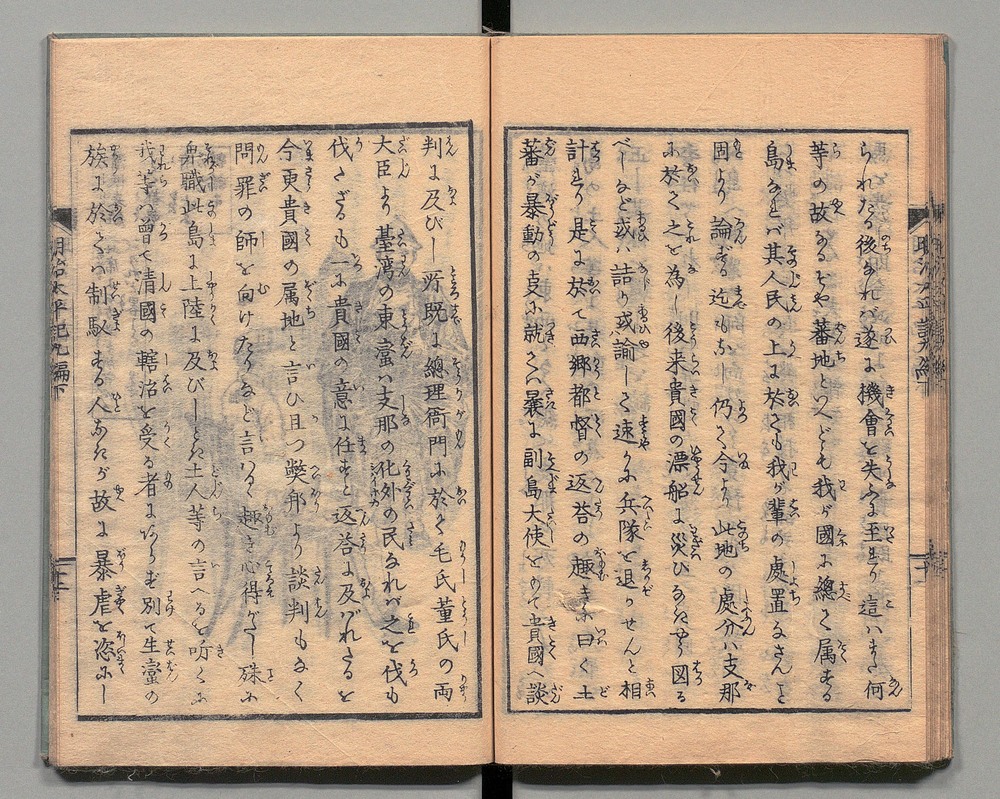 られたる後なれバ遂に機會を失ふに至るなり這ハまた何
等の故なるぞや蕃地といへども我が國に總て属する
島なれバ其人民の上に於ても我が輩の處置なさんこと
固より論ずる迄もなし仍て今より此地の處分ハ支那
に於て之を為し後来貴國の漂船に災ひなきやう図る
べしなど或ハ詰り或ハ諭して速かに兵隊を退かせんと相
計れり是に於て西郷都督の返答の趣きに曰く土
蕃が暴動の事に就てハ曩に副島大使をもて貴國へ談
判に及びし所既に總理衙門に於て毛氏董氏の両
大臣より臺湾の東蛮ハ支那の化外の民なれバ之を伐も
伐ざるも一に貴國の意に任すと返答に及ばれたるを
今更貴國の属地と言ひ且つ弊邦より談判もなく
問罪の師を向けたりなど言るゝ趣き心得がたし殊に
卑職此島に上陸に及びしとき土人等の言へるを聞くに
我等ハ曾て清國の轄治を受る者にあらず別て生蛮の
族に於てハ制馭する人なきが故に暴虐を恣にし
明治太平記九編下